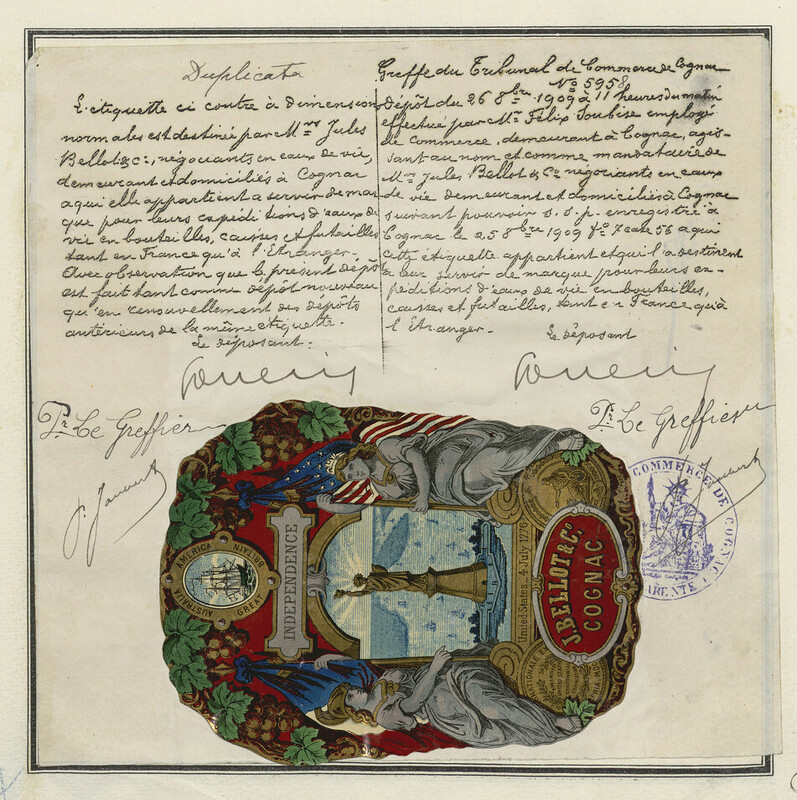 Duplicata
L'étiquette ci contre à dimensions
normales est destinée par Mrs Jules
Bellot & Ce, négociants en eaux de vie,
demeurant et domiciliés à Cognac
a qui elle appartient a servir de mar-
que pour leurs expéditions d'eaux de
vie en bouteilles, caisses et futailles
tant en France qu'à l'Etranger.
Avec observation que le présent dépôt
est fait tant comme dépôt nouveau
qu'en renouvellement des dépôts
antérieurs de la même étiquette.
Le déposant.
Pr Le Greffier
Greffe du Tribunal de Commerce de Cognac
No 5958
Dépôt du 26 8bre 1909 à 11 heures du matin
effectué par Mr Félix Soubise employé
de Commerce, demeurant à Cognac, agis-
sant au nom et comme mandataire de
Mrs Jules Bellot & Ce négociants en eaux
de vie demeurant et domiciliés à Cognac
suivant pouvoir s.s.p. enregistré à
Cognac le 25 8bre 1909 fo 7 case 56 a qui
cette étiquette appartient et qui l'a destinent
a leur servir de marque pour leurs ex-
péditions d'eaux de vie en bouteilles,
caisses et futailles, tant en France qu'à
l'Etranger.
Le déposant
Pr Le Greffier
COMMERCE DE COGNAC
AMERICA
AUSTRALIA
GREAT
BRITAIN
INDEPENDENCE
United States_4 July 1776
J. BELLOT & Co
COGNAC